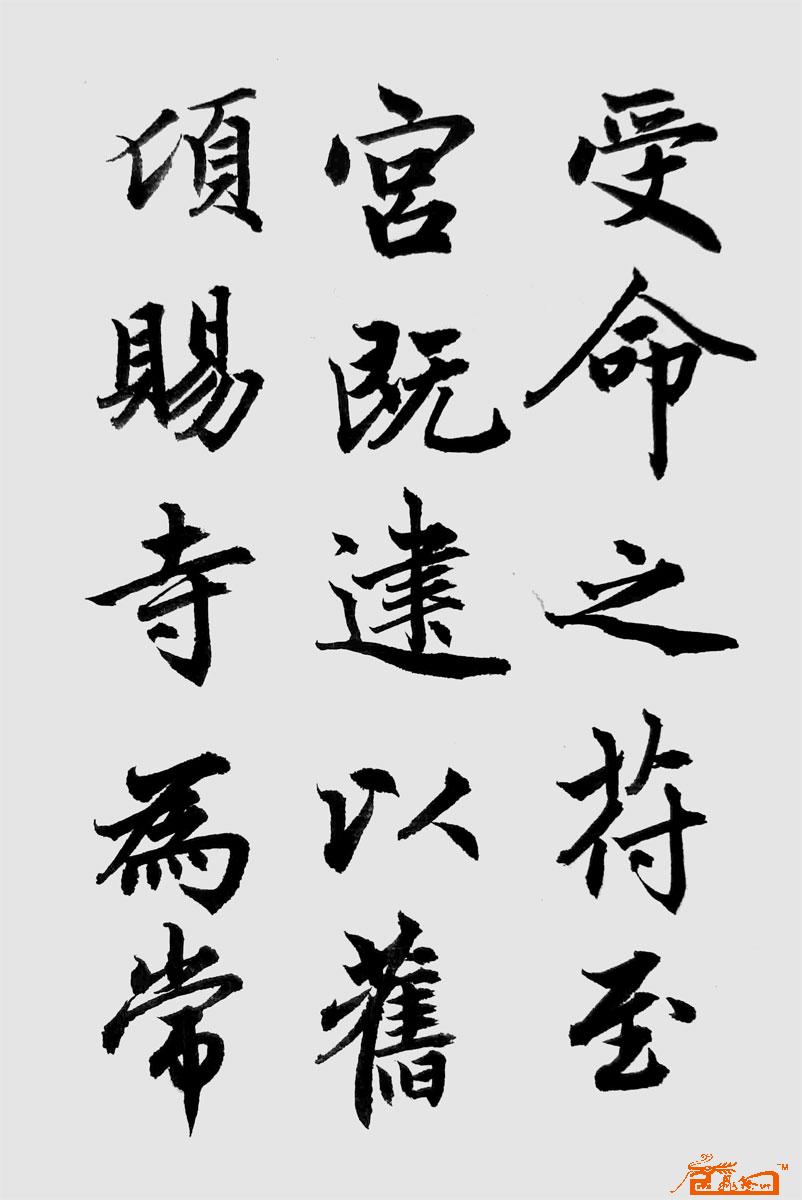 受命之符至
宮既建以舊
頃賜寺為常